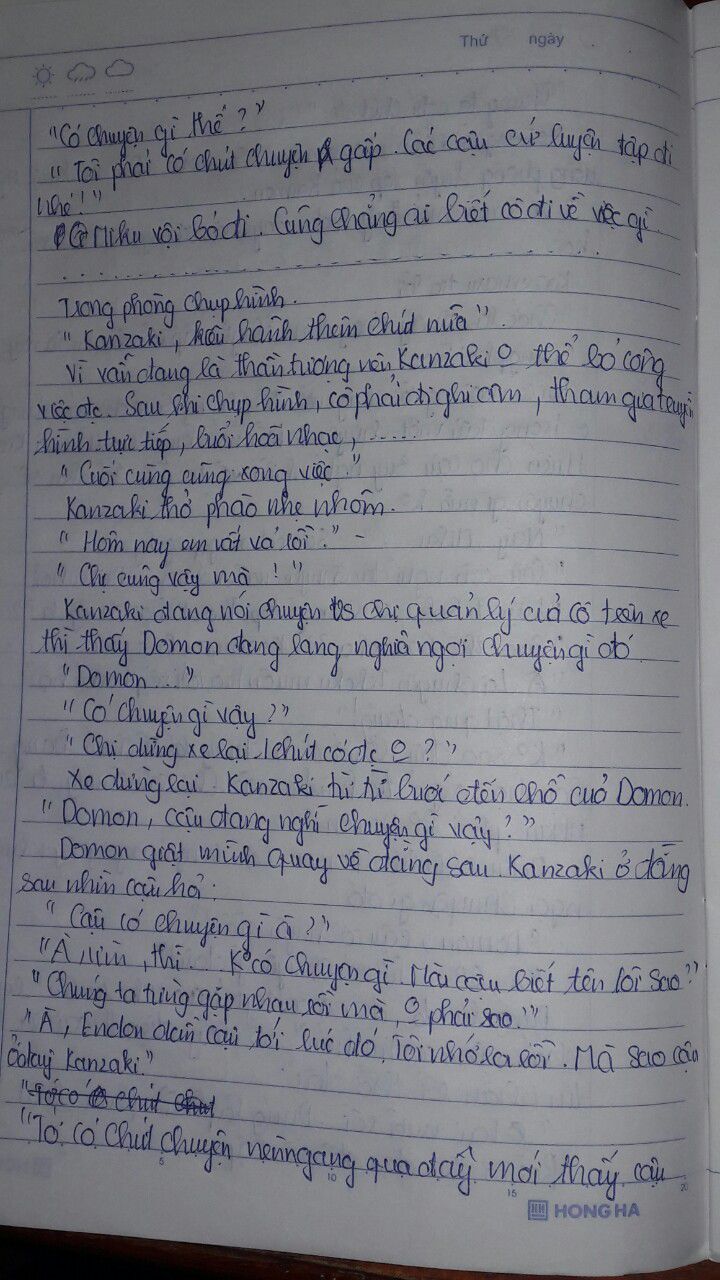 Thứ ngày
"Có chuyện gì thế?"
"Tôi phải có chút chuyện gấp. Các cậu cứ luyện tập đi
nhé!"
Miku vội bỏ đi. Cũng chẳng ai biết cô đi về việc gì.
Trong phòng chụp hình.
"Kanzaki, kiêu hãnh thêm chút nữa".
Vì vẫn đang là thần tượng nên Kanzaki o thể bỏ công
việc đc. Sau khi chụp hình, cô phải đi ghi âm, tham gia truyền
hình trực tiếp, buổi hoà nhạc, .....
"Cuối cùng cũng xong việc"
Kanzaki thở phào nhẹ nhõm.
"Hôm nay em vất vả rồi." -
"Chị cũng vậy mà !"
Kanzaki đang nói chuyện vs chị quản lý của cô trên xe
thì thấy Domon đang lang nghĩ ngợi chuyện gì đó
"Domon..."
"Có chuyện gì vậy?"
"Chị dừng xe lại 1 chút có đc o ?"
Xe dừng lại. Kanzaki từ từ bước đến chỗ của Domon.
"Domon, cậu đang nghĩ chuyện gì vậy?"
Domon giật mình quay về đằng sau. Kanzaki ở đằng
sau nhìn cậu hỏi:
"Cậu có chuyện gì à?"
"À, ưm, thì... Ko có chuyện gì. Mà cậu biết tên tôi sao?"
"Chúng ta từng gặp nhau rồi mà, o phải sao."
"À, Endou dẫn cậu tới lúc đó. Tôi nhớ ra rồi. Mà sao cậu
ở đây Kanzaki."
"Tớ có chút
"Tớ có chút chuyện nên ngang qua đây mới thấy cậu
5 10 15 20
HH HONG HA